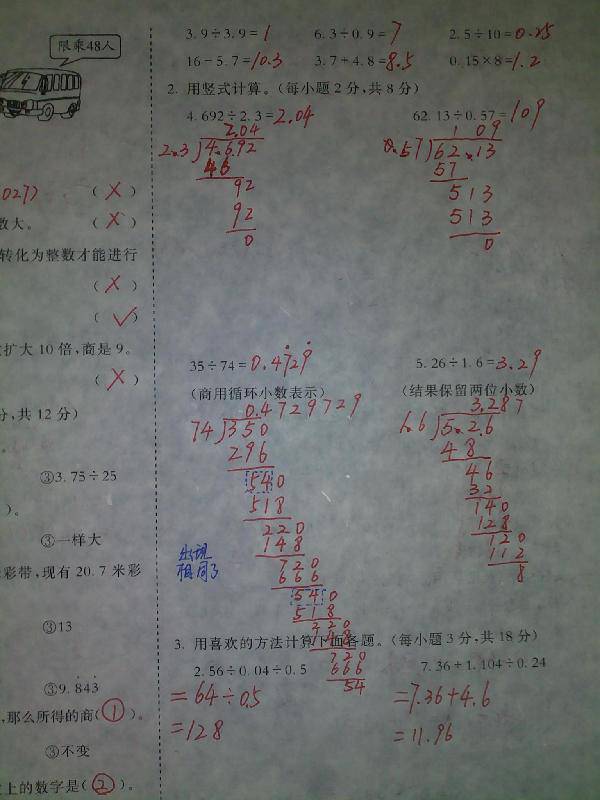 限乘48人
027)
(×)
数大。
(×)
转化为整数才能进行
(×)
(✓)
扩大 10 倍,商是 9。
(×)
分,共 12 分)
③3.75÷25
)。
③一样大
彩带,现有 20.7 米彩
③13
③9.8̇43̇
,那么所得的商(①)。
③不变
上的数字是(②)。
3.9÷3.9=1 6.3÷0.9=7 2.5÷10=0.25
16-5.7=10.3 3.7+4.8=8.5 0.15×8=1.2
2. 用竖式计算。(每小题 2 分,共 8 分)
4.692÷2.3=2.04 62.13÷0.57=109
2.04
2.3)4.6.92
46
92
92
0
1 09
0.57)62.13
57
513
513
0
35÷74=0.47̇29̇ 5.26÷1.6=3.29
(商用循环小数表示) (结果保留两位小数)
0.4729729
74)350
296
540
518
220
148
720
666
540
518
220
148
720
666
54
出现
相同了
3.287
1.6)5.2.6
48
46
32
140
128
120
112
8
3. 用喜欢的方法计算下面各题。(每小题 3 分,共 18 分)
2.56÷0.04÷0.5 7.36+1.104÷0.24
=64÷0.5 =7.36+4.6
=128 =11.96